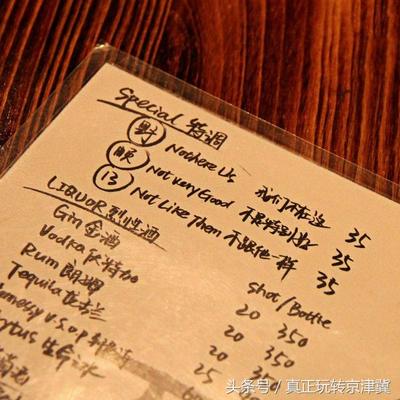 Special 特调
野 Nowhere Us 我们不在这 35
顺 Not Very Good 不是特别好 35
13 Not Like Them 不跟他一样 35
LIQUOR 烈性酒 shot/Bottle
Gin 金酒 20 350
Vodka 伏特加 20 350
Rum 朗姆 20 350
Tequila 龙舌兰 25
V.S.O.P
生命之水
头条号 / 真正玩转京津冀